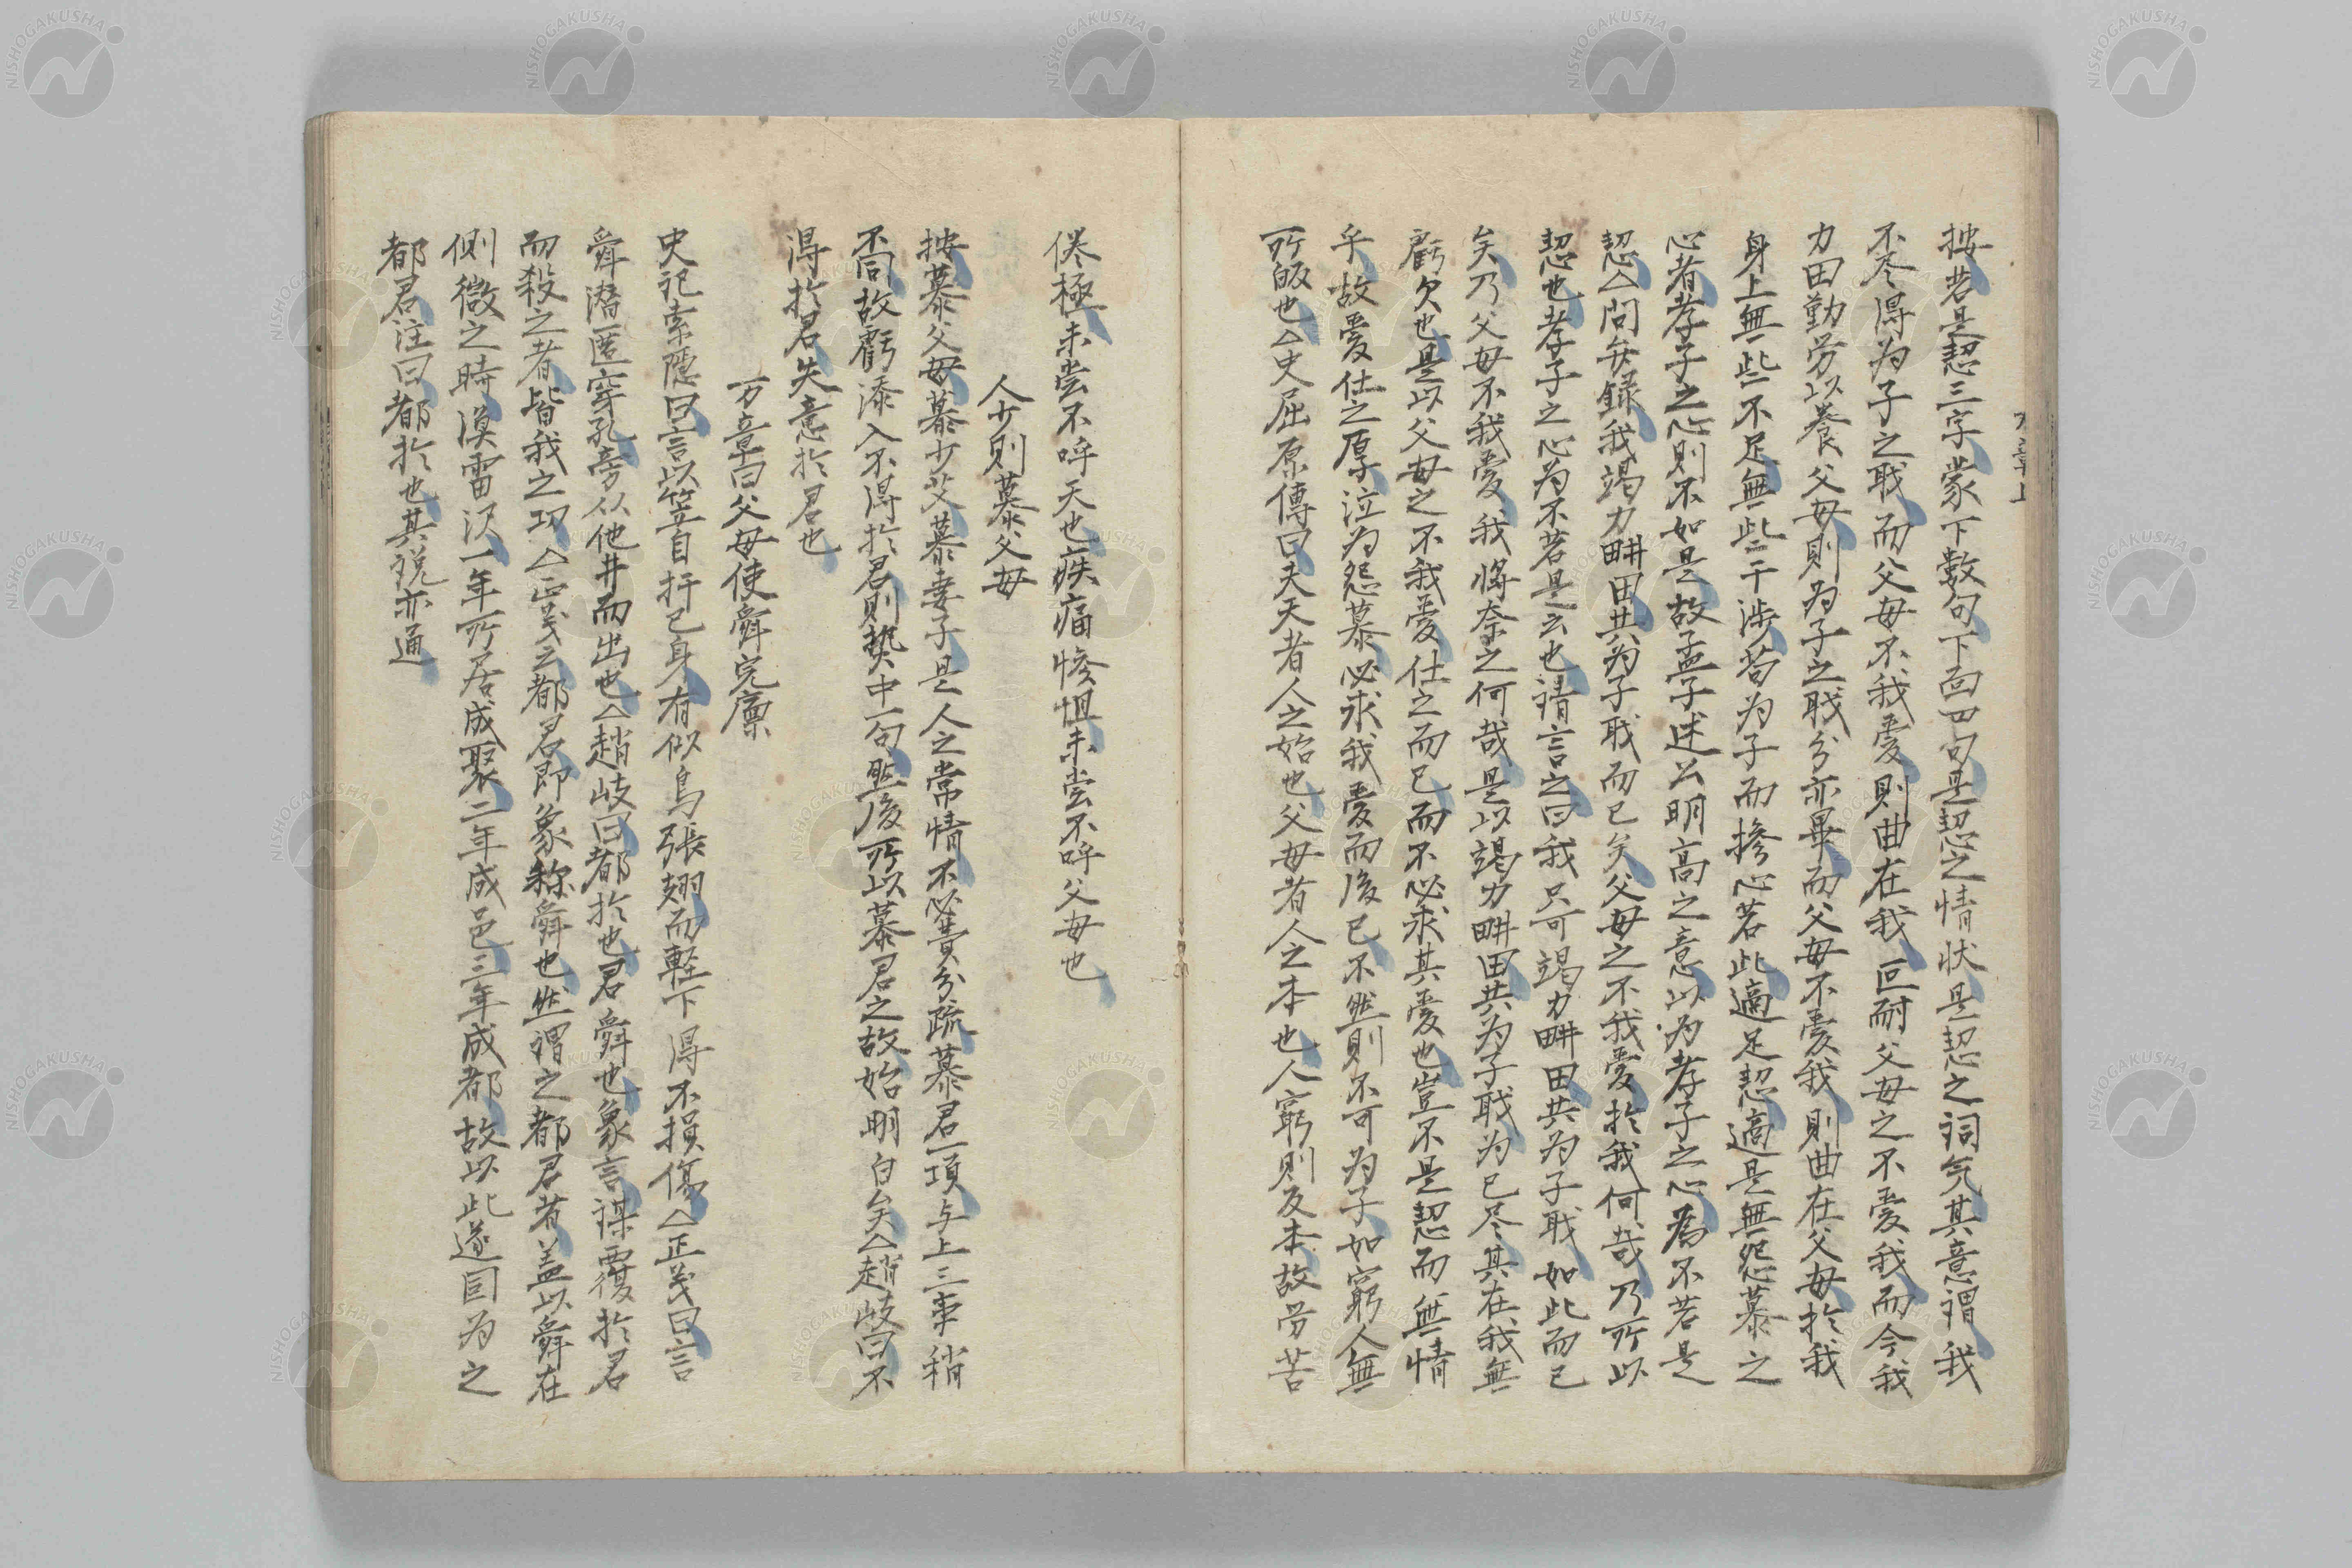 万章上
按若是恝三字蒙下数句下面四句是恝之情状是恝之詞気其意謂我
不尽得为子之職而父母不我爱則曲在我叵耐父母之不爱我而今我
力田勤劳以養父母則为子之職分亦畢而父母不爱我則曲在父母於我
身上無些不足無些干涉苟为子而掺心若此適足恝適是無怨慕之
心者孝子之心則不如是故孟子述公明高之意以为孝子之心為不若是
恝△問弁録我竭力畊田共为子職而已矣父母之不我爱於我何哉乃所以
恝也孝子之心为不若是云也請言之曰我只可竭力畊田共为子職如此而已
矣乃父母不我爱我将奈之何哉是以竭力畊田共为子職为已尽其在我無
虧欠也是以父母之不我爱仕之而已而不必求其爱也豈不是恝而無情
乎故爱仕之厚泣为怨慕必求我爱而後已不然則不可为子如窮人無
所皈也△史屈原傳曰夫天者人之始也父母者人之本也人窮則反本故労苦
倦極未嘗不呼天也疾痛惨怛未嘗不呼父母也
人少則慕父母
按慕父母慕少艾慕妻子是人之常情不必費分疏慕君一項与上三事稍
不同故虧添入不得於君則熱中一句然後所以慕君之故始明白矣△趙岐曰不
得於君失意於君也
万章曰父母使舜完廩
史記索隠曰言以笠自扞己身有似鳥張翅而軽下得不損傷△正義曰言
舜潜匿穿孔旁从他井而出也△趙岐曰都於也君舜也象言謀覆於君
而殺之者皆我之功△正義云都君即象称舜也然謂之都君者盖以舜在
側微之時漁雷沢一年所居成聚二年成邑三年成都故以此遂因为之
都君注曰都於也其説亦通